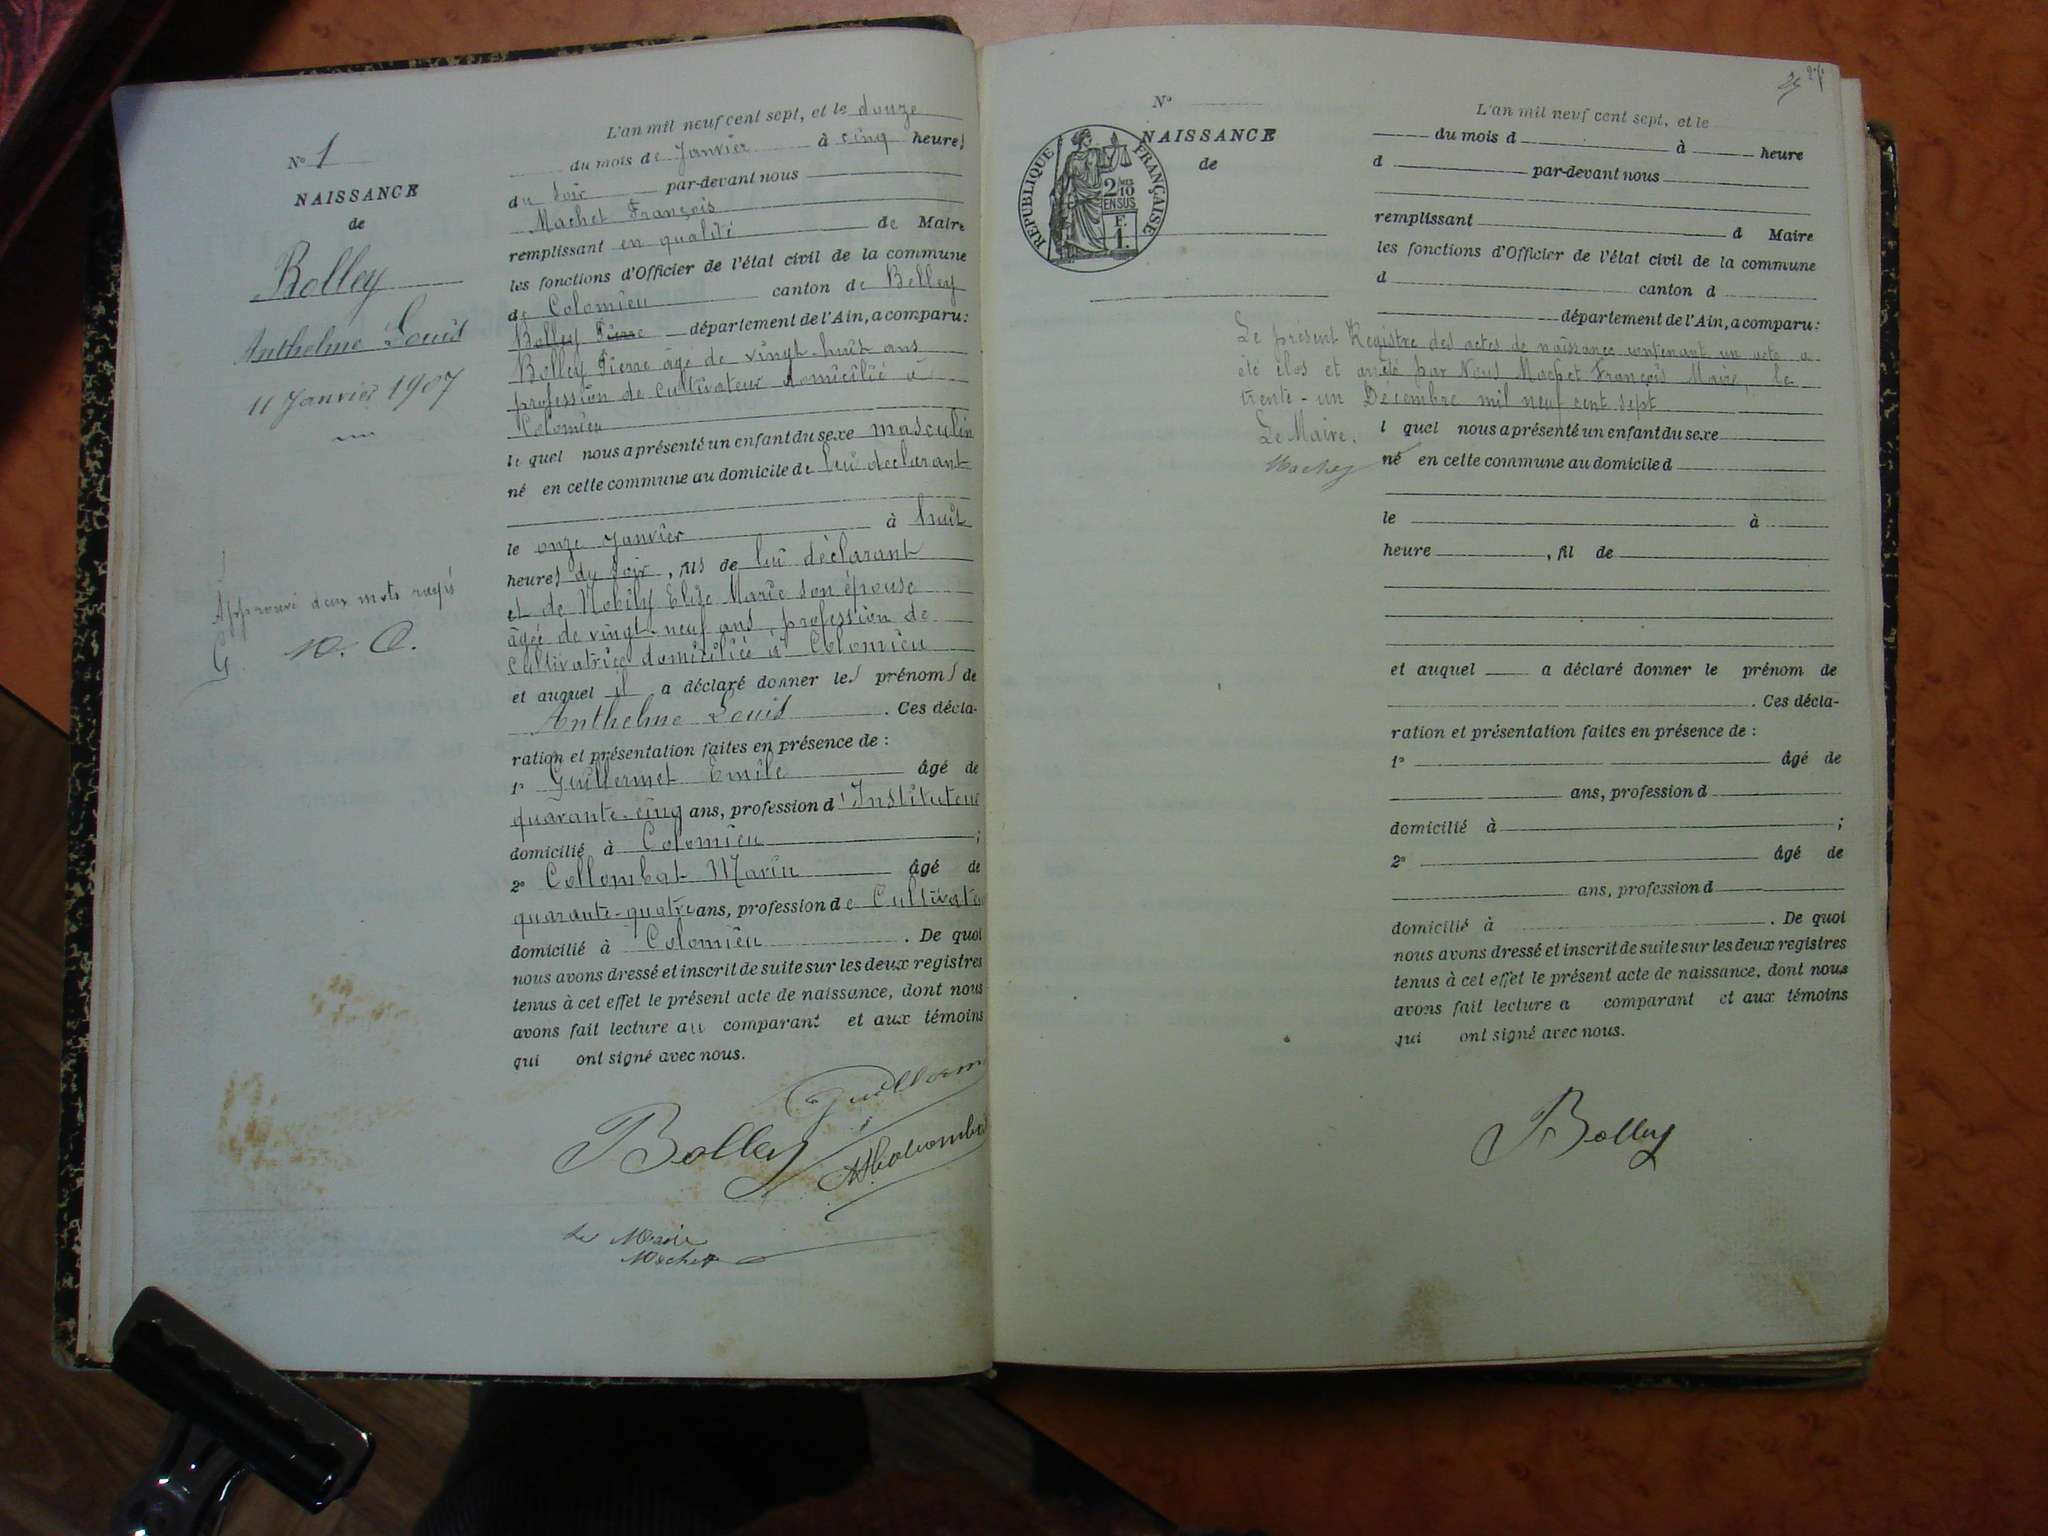 N° 1
NAISSANCE
de
Bolley
Anthelme Louis
11 Janvier 1907
Approuvé deux mots rayés
G. M. C.
L'an mil neuf cent sept, et le douze
du mois de Janvier à cinq heures
du soir par-devant nous
Machet François
remplissant en qualité de Maire
les fonctions d'Officier de l'état civil de la commune
de Colomieu canton de Belley
Bolley Pierre département de l'Ain, a comparu :
Bolley Pierre âgé de vingt-huit ans
profession de cultivateur domicilié à
Colomieu
le quel nous a présenté un enfant du sexe masculin
né en cette commune au domicile de lui déclarant
le onze Janvier à huit
heures du soir, fils de lui déclarant
et de Nobily Elise Marie son épouse
âgée de vingt-neuf ans, profession de
Cultivatrice domiciliée à Colomieu
et auquel il a déclaré donner les prénoms de
Anthelme Louis. Ces décla-
ration et présentation faites en présence de :
1° Guillermet Emile âgé de
quarante-cinq ans, profession d'Instituteur
domicilié à Colomieu ;
2° Collombat Marin âgé de
quarante-quatre ans, profession de Cultivateu
domicilié à Colomieu. De quoi
nous avons dressé et inscrit de suite sur les deux registres
tenus à cet effet le présent acte de naissance, dont nous
avons fait lecture au comparant et aux témoins
qui ont signé avec nous.
Guillerm
Bolley
Le Maire
Machet
N°
NAISSANCE
de
RÉPUBLIQUE FRANÇAISE
2/10
EN SUS
E.
1.
27
L'an mil neuf cent sept, et le
du mois d à heure
d par-devant nous
remplissant d Maire
les fonctions d'Officier de l'état civil de la commune
d canton d
département de l'Ain, a comparu :
Le présent Registre des actes de naissance contenant un acte a
été clos et arrêté par Nous Machet François Maire, le
trente-un Décembre mil neuf cent sept
Le Maire.
Machet
l quel nous a présenté un enfant du sexe
né en cette commune au domicile d
le à
heure , fil de
et auquel a déclaré donner le prénom de
. Ces décla-
ration et présentation faites en présence de :
1° âgé de
ans, profession d
domicilié à ;
2° âgé de
ans, profession d
domicilié à . De quoi
nous avons dressé et inscrit de suite sur les deux registres
tenus à cet effet le présent acte de naissance, dont nous
avons fait lecture a comparant et aux témoins
qui ont signé avec nous.
Bolley